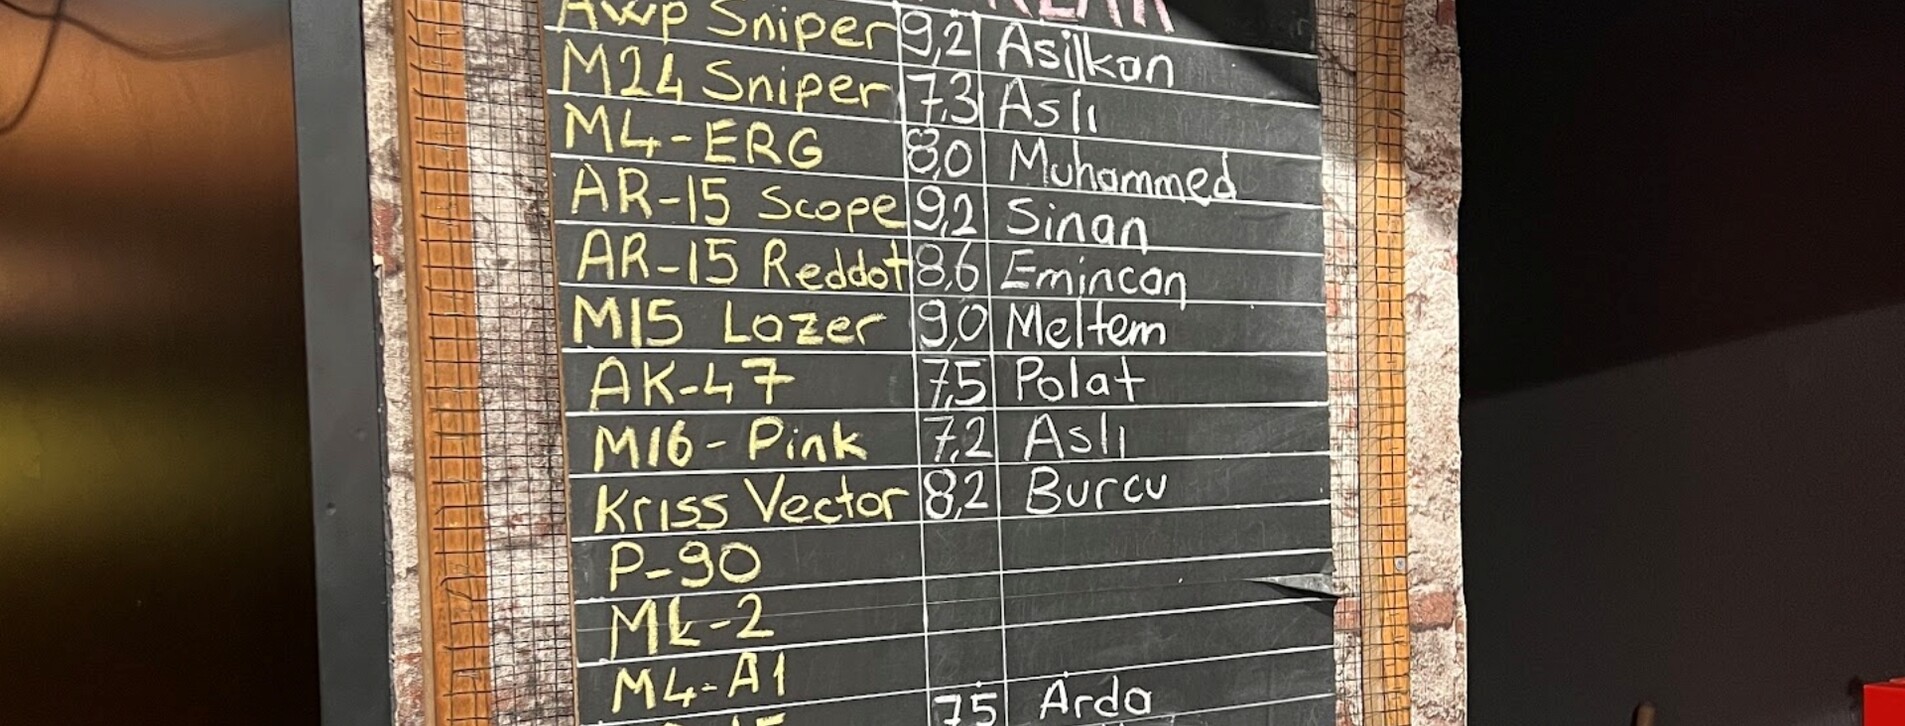 Awp Sniper 9,2 Asilkan
M24 Sniper 7,3 Aslı
M4-ERG 8,0 Muhammed
AR-15 Scope 9,2 Sinan
AR-15 Reddot 8,6 Emincan
M15 Lazer 9,0 Meltem
AK-47 7,5 Polat
M16-Pink 7,2 Aslı
Kriss Vector 8,2 Burcu
P-90
ML-2
M4-A1
7,5 Arda